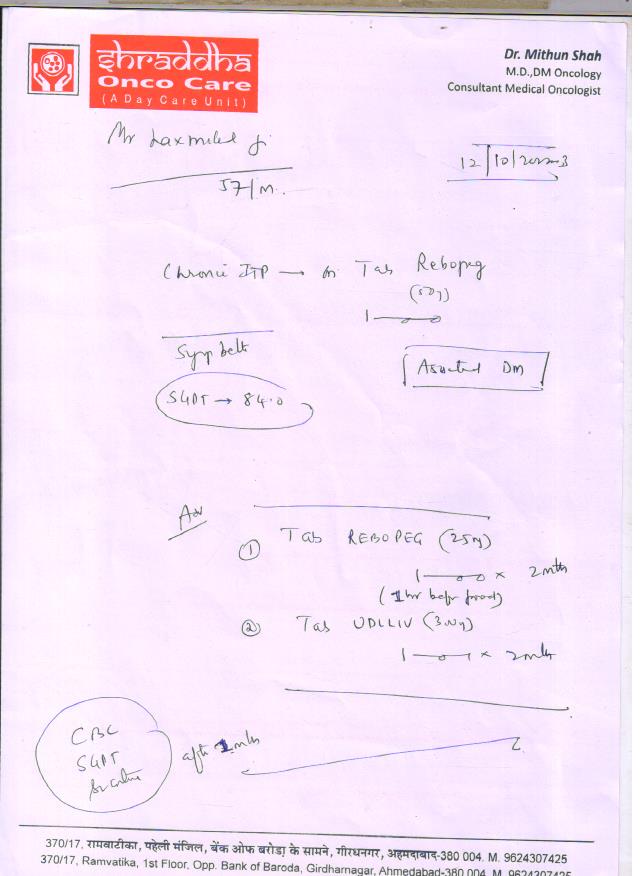 shraddha
Onco Care
(A Day Care Unit)
Dr. Mithun Shah
M.D.,DM Oncology
Consultant Medical Oncologist
Mr
12/10/2023
57/M.
Chronic ITP → on Tab Rebopeg
(50)
1—0—0
Symp better
Associated DM
SGPT → 84.0
Adv
① Tab REBOPEG (25)
1—0—0 × 2 mths
(1 hr before food)
② Tab UDLLIV (300)
1—0—1 × 2 mths
CBC
SGPT
Sr creatinine
after 1 mths
370/17, रामवाटीका, पहेली मंजिल, बेंक ओफ बरोडा के सामने, गीरधनगर, अहमदाबाद-380 004. M. 9624307425
370/17, Ramvatika, 1st Floor, Opp. Bank of Baroda, Girdharnagar, Ahmedabad-380 004. M. 9624307425